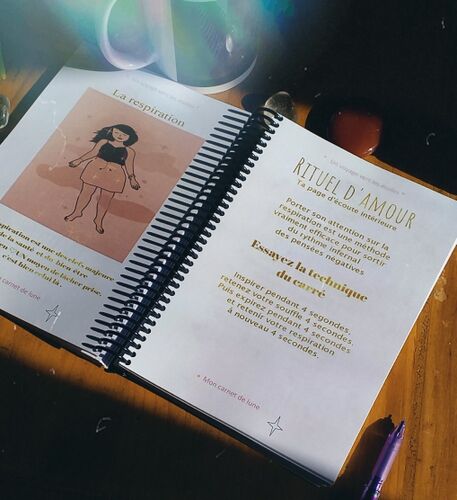 Un voyage vers les étoiles
La respiration
respiration est une des clefs majeures
de la santé et du bien être.
moyen de lâcher prise,
c'est bien celui là.
Mon carnet de lune
Un voyage vers les étoiles
RITUEL D'AMOUR
Ta page d'écoute intérieure
Porter son attention sur la
respiration est une méthode
vraiment efficace pour sortir
du rythme infernal
des pensées négatives
Essayez la technique
du carré
Inspirer pendant 4 segondes,
retenez votre souffle 4 secondes.
Puis expirez pendant 4 secondes
et retenir votre respiration
à nouveau 4 secondes.
Mon carnet de lune